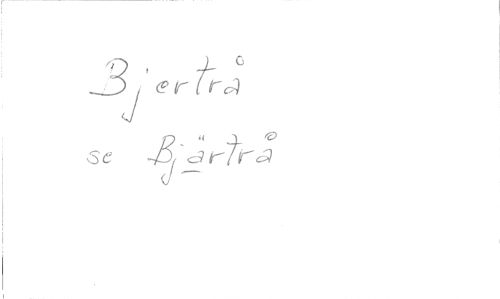 Bjertrå
se Bjärtrå